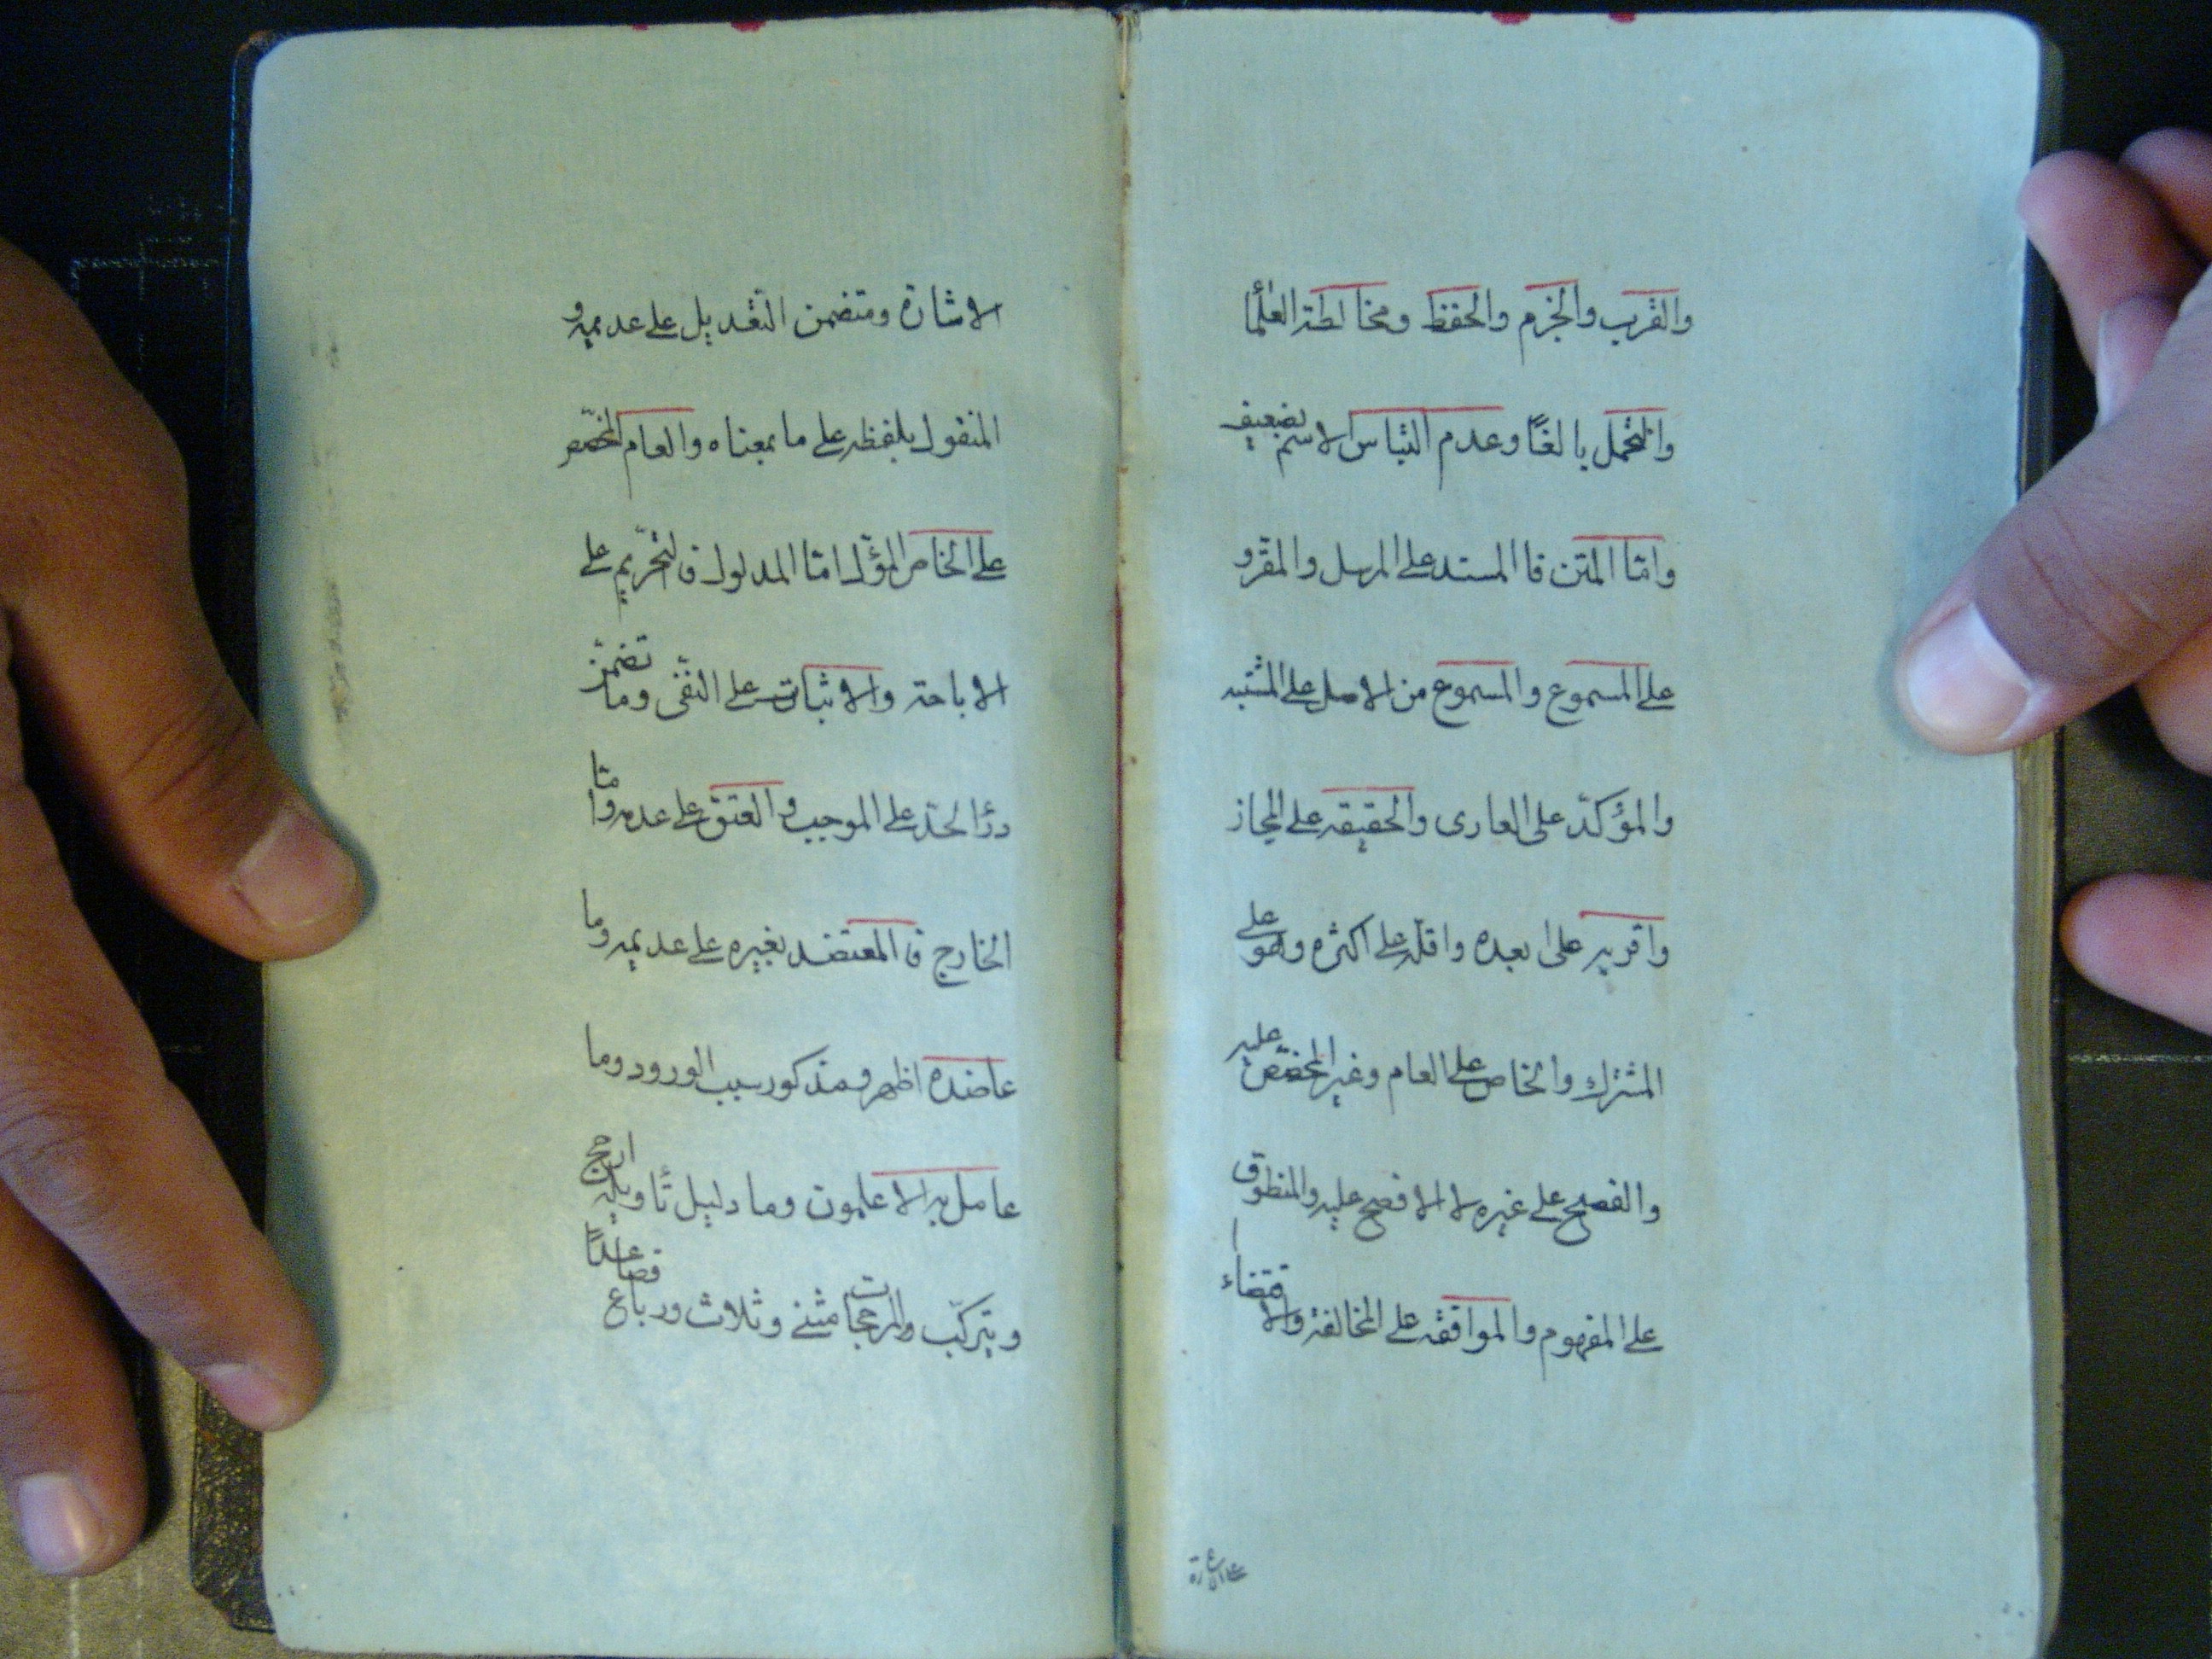 والقرب والجزم والحفظ ومخالطة العلما
والتحمل بالغًا وعدم التباس الاسم بضعيف
وامّا المتن فا المسند على المرسل والمقرو
على المسموع والمسموع من الاصل على المشتبه
والمؤكدّ على العارى والحقيقه على المجاز
واقربه على ابعده واقلّه على اكثره وهو على
المشترك والخاص على العام وغير المخصّص عليه
والفصيح على غيره لا الافصح عليه والمنطوق
على المفهوم والموافقه على المخالفة والاقتضاء
على الاشارة
الاشارة ومتضمن التعديل على عديمه و
المنقول بلفظه على ما بمعناه والعام المخصّص
على الخاص المؤّل امّا المدلول فالتحريم على
الاباحة والاثبات على النفى وما تضمّن
درٔا الحدّ على الموجب والعتق على عدمه وامّا
الخارج فا المعتضد بغيره على عديمه وما
عاضده اظهر ومذكور سبب الورود وما
عامل به الاعلمون وما دليل تأويله ارجح
ويتركّب والمرجحات مثنى وثلاث ورباع فصاعدًا